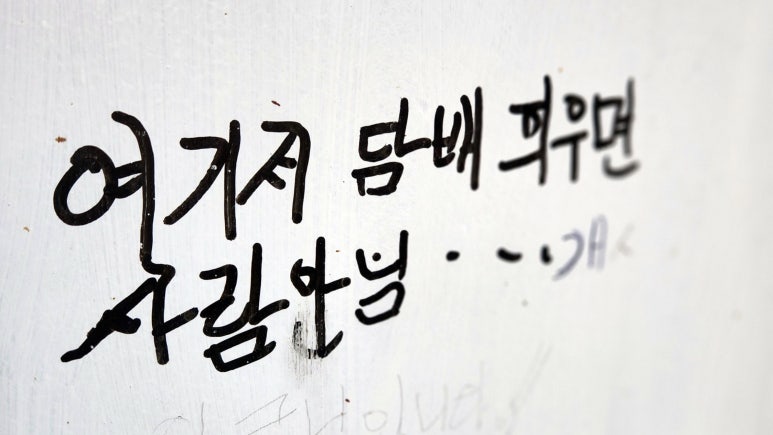 여기저 담배 피우면
사람아님... 개